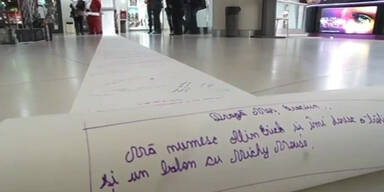 Dragă Moș Crăciun,
Mă numesc Alin și îmi doresc o
și un balon cu Micky Mouse.